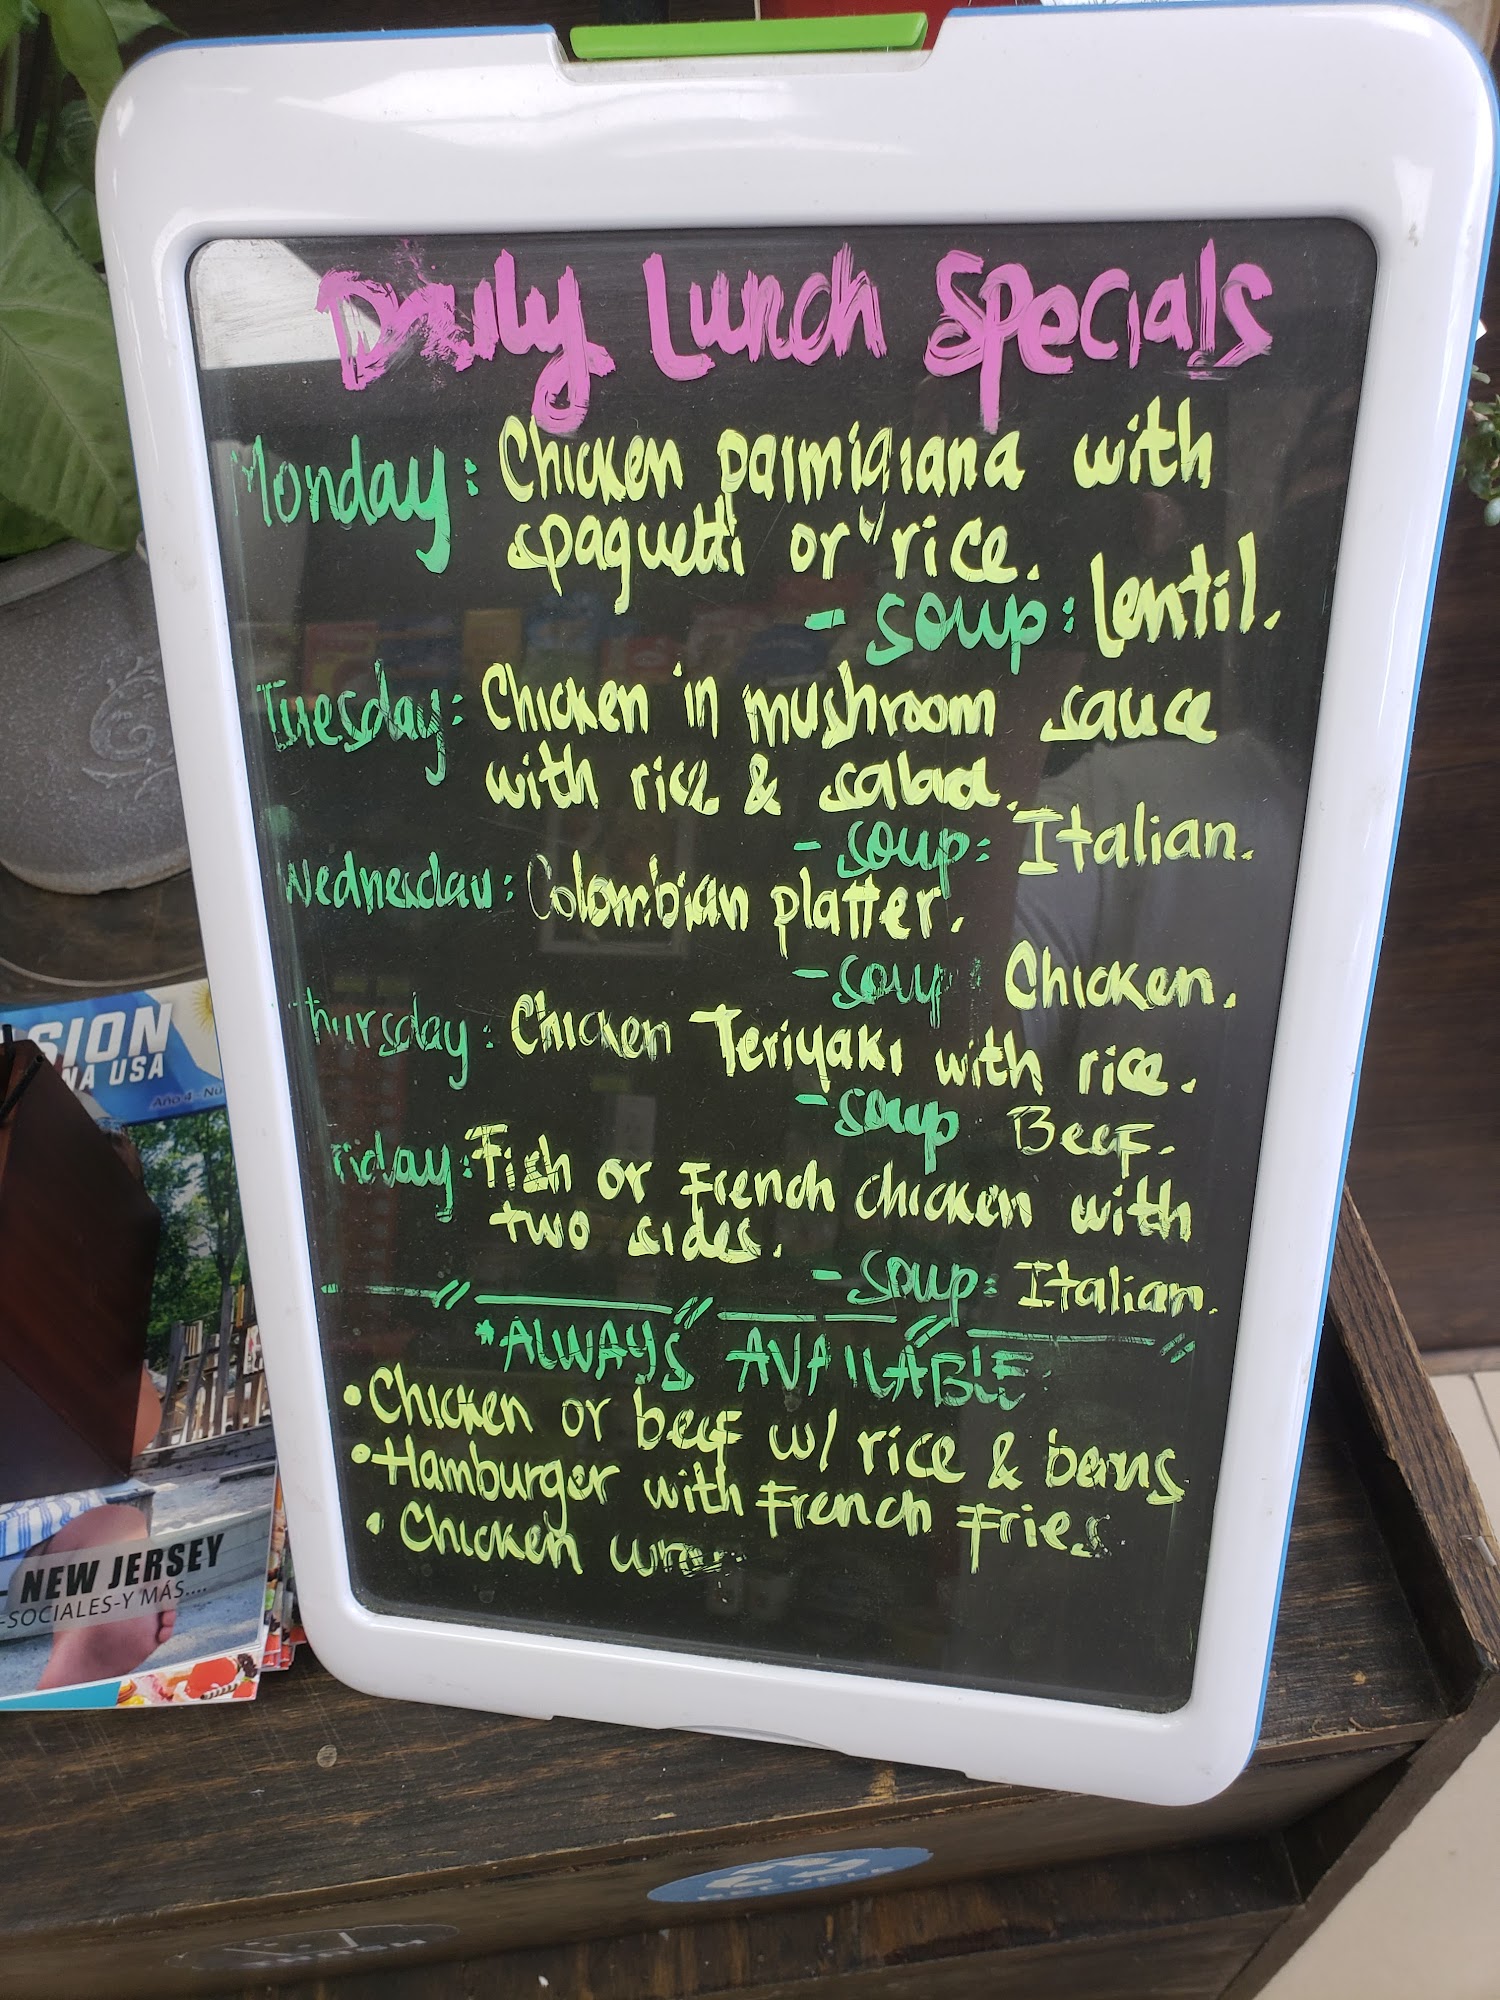 Daily Lunch Specials
Monday: Chicken parmigiana with
spaguetti or rice.
- Soup: lentil.
Tuesday: Chicken in mushroom sauce
with rice & salad.
- Soup: Italian.
Wednesday: Colombian platter.
- Soup: Chicken.
Thursday: Chicken Teriyaki with rice.
- Soup Beef.
Friday: Fish or French chicken with
two sides.
- Soup: Italian.
*ALWAYS AVAILABLE
• Chicken or beef w/ rice & beans
• Hamburger with French Fries
• Chicken
SION
NA USA
Año 4 - Nú
NEW JERSEY
-SOCIALES-Y MÁS....